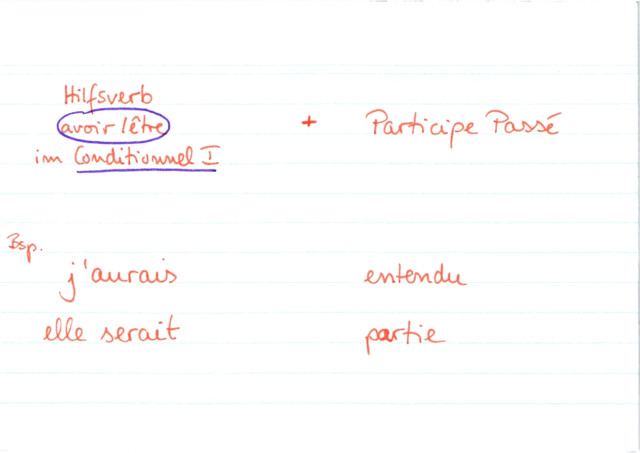 Hilfsverb
avoir/être + Participe Passé
im Conditionnel I
Bsp.
j'aurais entendu
elle serait partie